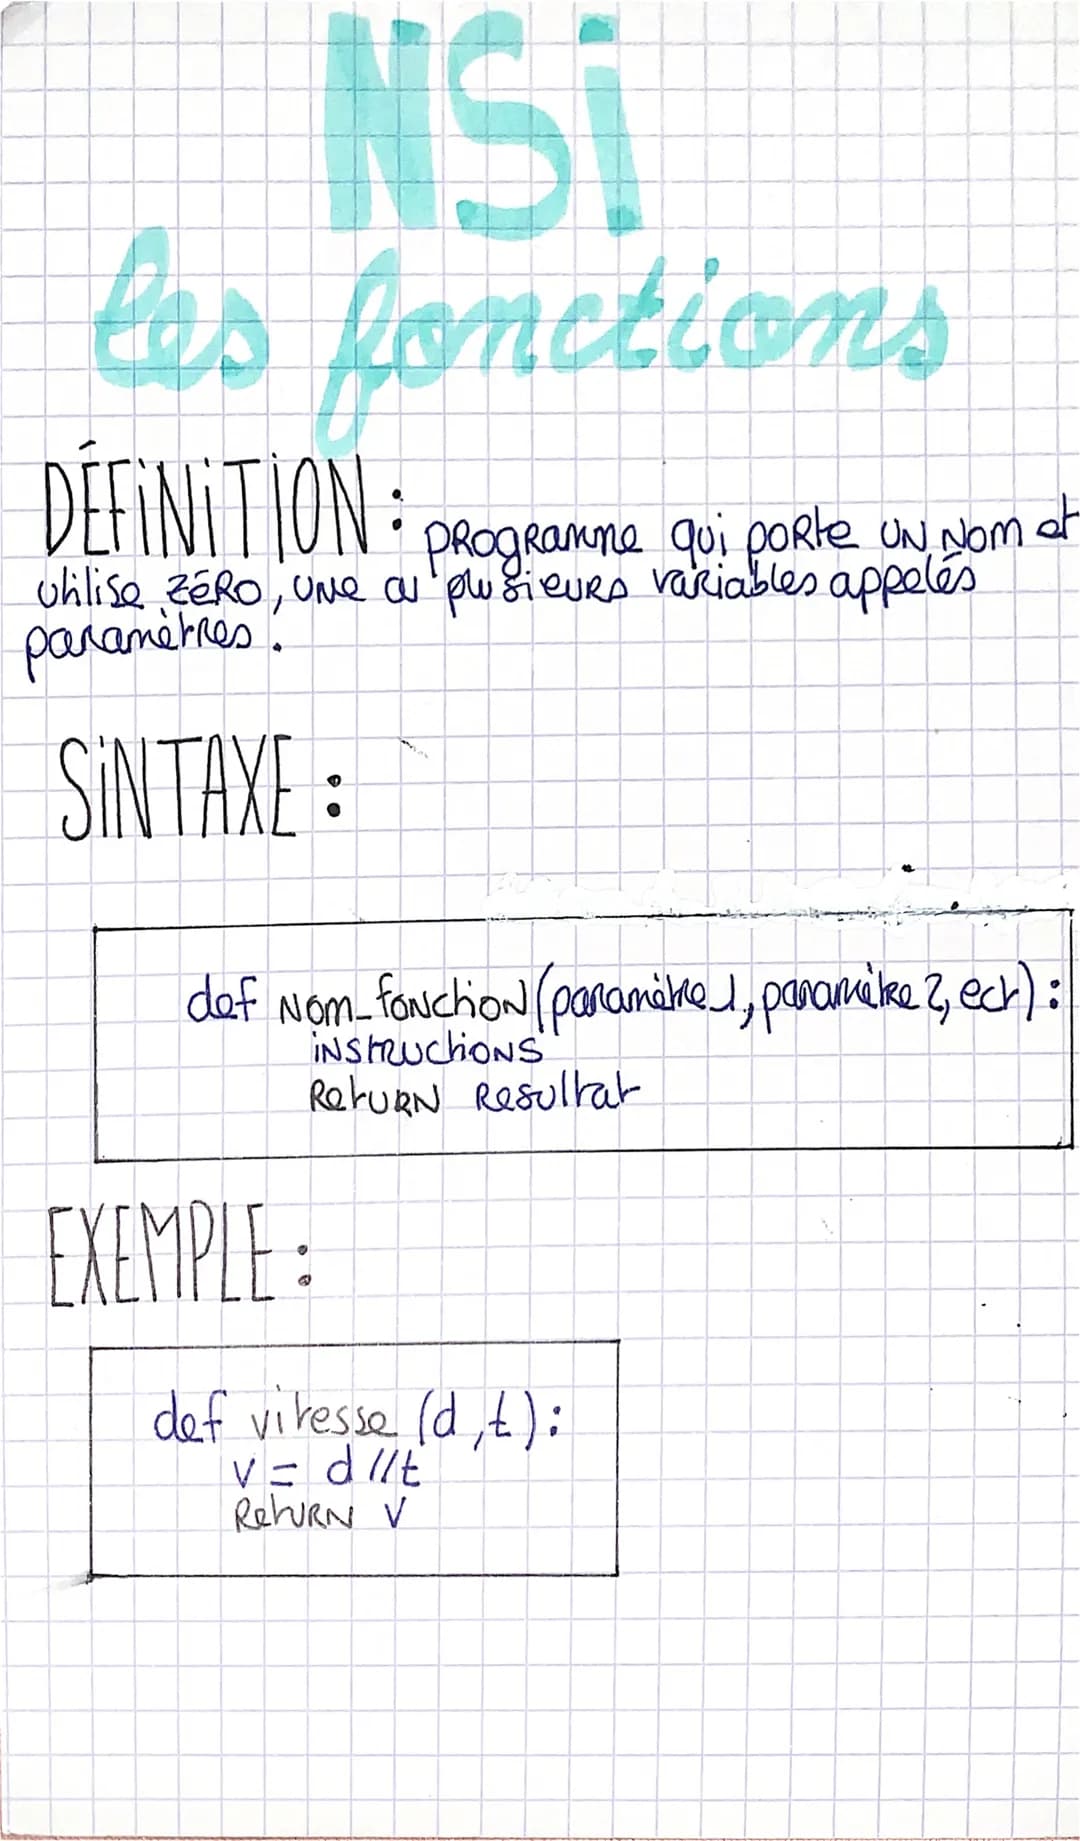 NSi
les fonctions
DÉFINITION : PROGRAMME qui PORTE UN NOM et
utilise ZÉRO, UNE ou plusieurs variables appelés
paramètres.
SINTAXE :
def NOM_fonction(paramètre1, paramètre2, ect):
instructions
RETURN Resultat
EXEMPLE :
def vitesse (d,t):
v = d//t
RETURN v